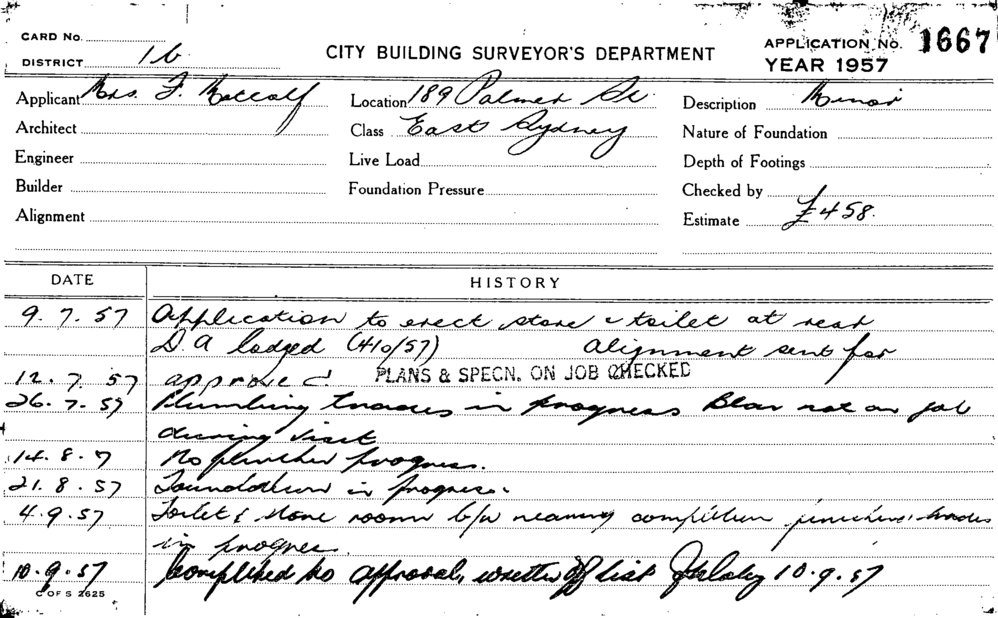 CARD No.
DISTRICT 1b
CITY BUILDING SURVEYOR'S DEPARTMENT
APPLICATION No. 1667
YEAR 1957
Applicant Mrs. F. Metcalf
Location 189 Palmer St.
Description Minor
Architect
Class East Sydney
Nature of Foundation
Engineer
Live Load
Depth of Footings
Builder
Foundation Pressure
Checked by
Alignment
Estimate £458.
DATE HISTORY
9.7.57 Application to erect store & toilet at rear
D.A lodged (410/57) Alignment sent for
12.7.57 approved PLANS & SPECN. ON JOB CHECKED
26.7.57 Plumbing trades in progress Bldr not on job
during visit
14.8.7 No further progress.
21.8.57 Foundations in progress.
4.9.57 Toilet & store room b/w nearing completion finishing trades
in progress.
10.9.57 Completed to approval, written off list 10.9.57
C OF S 2625